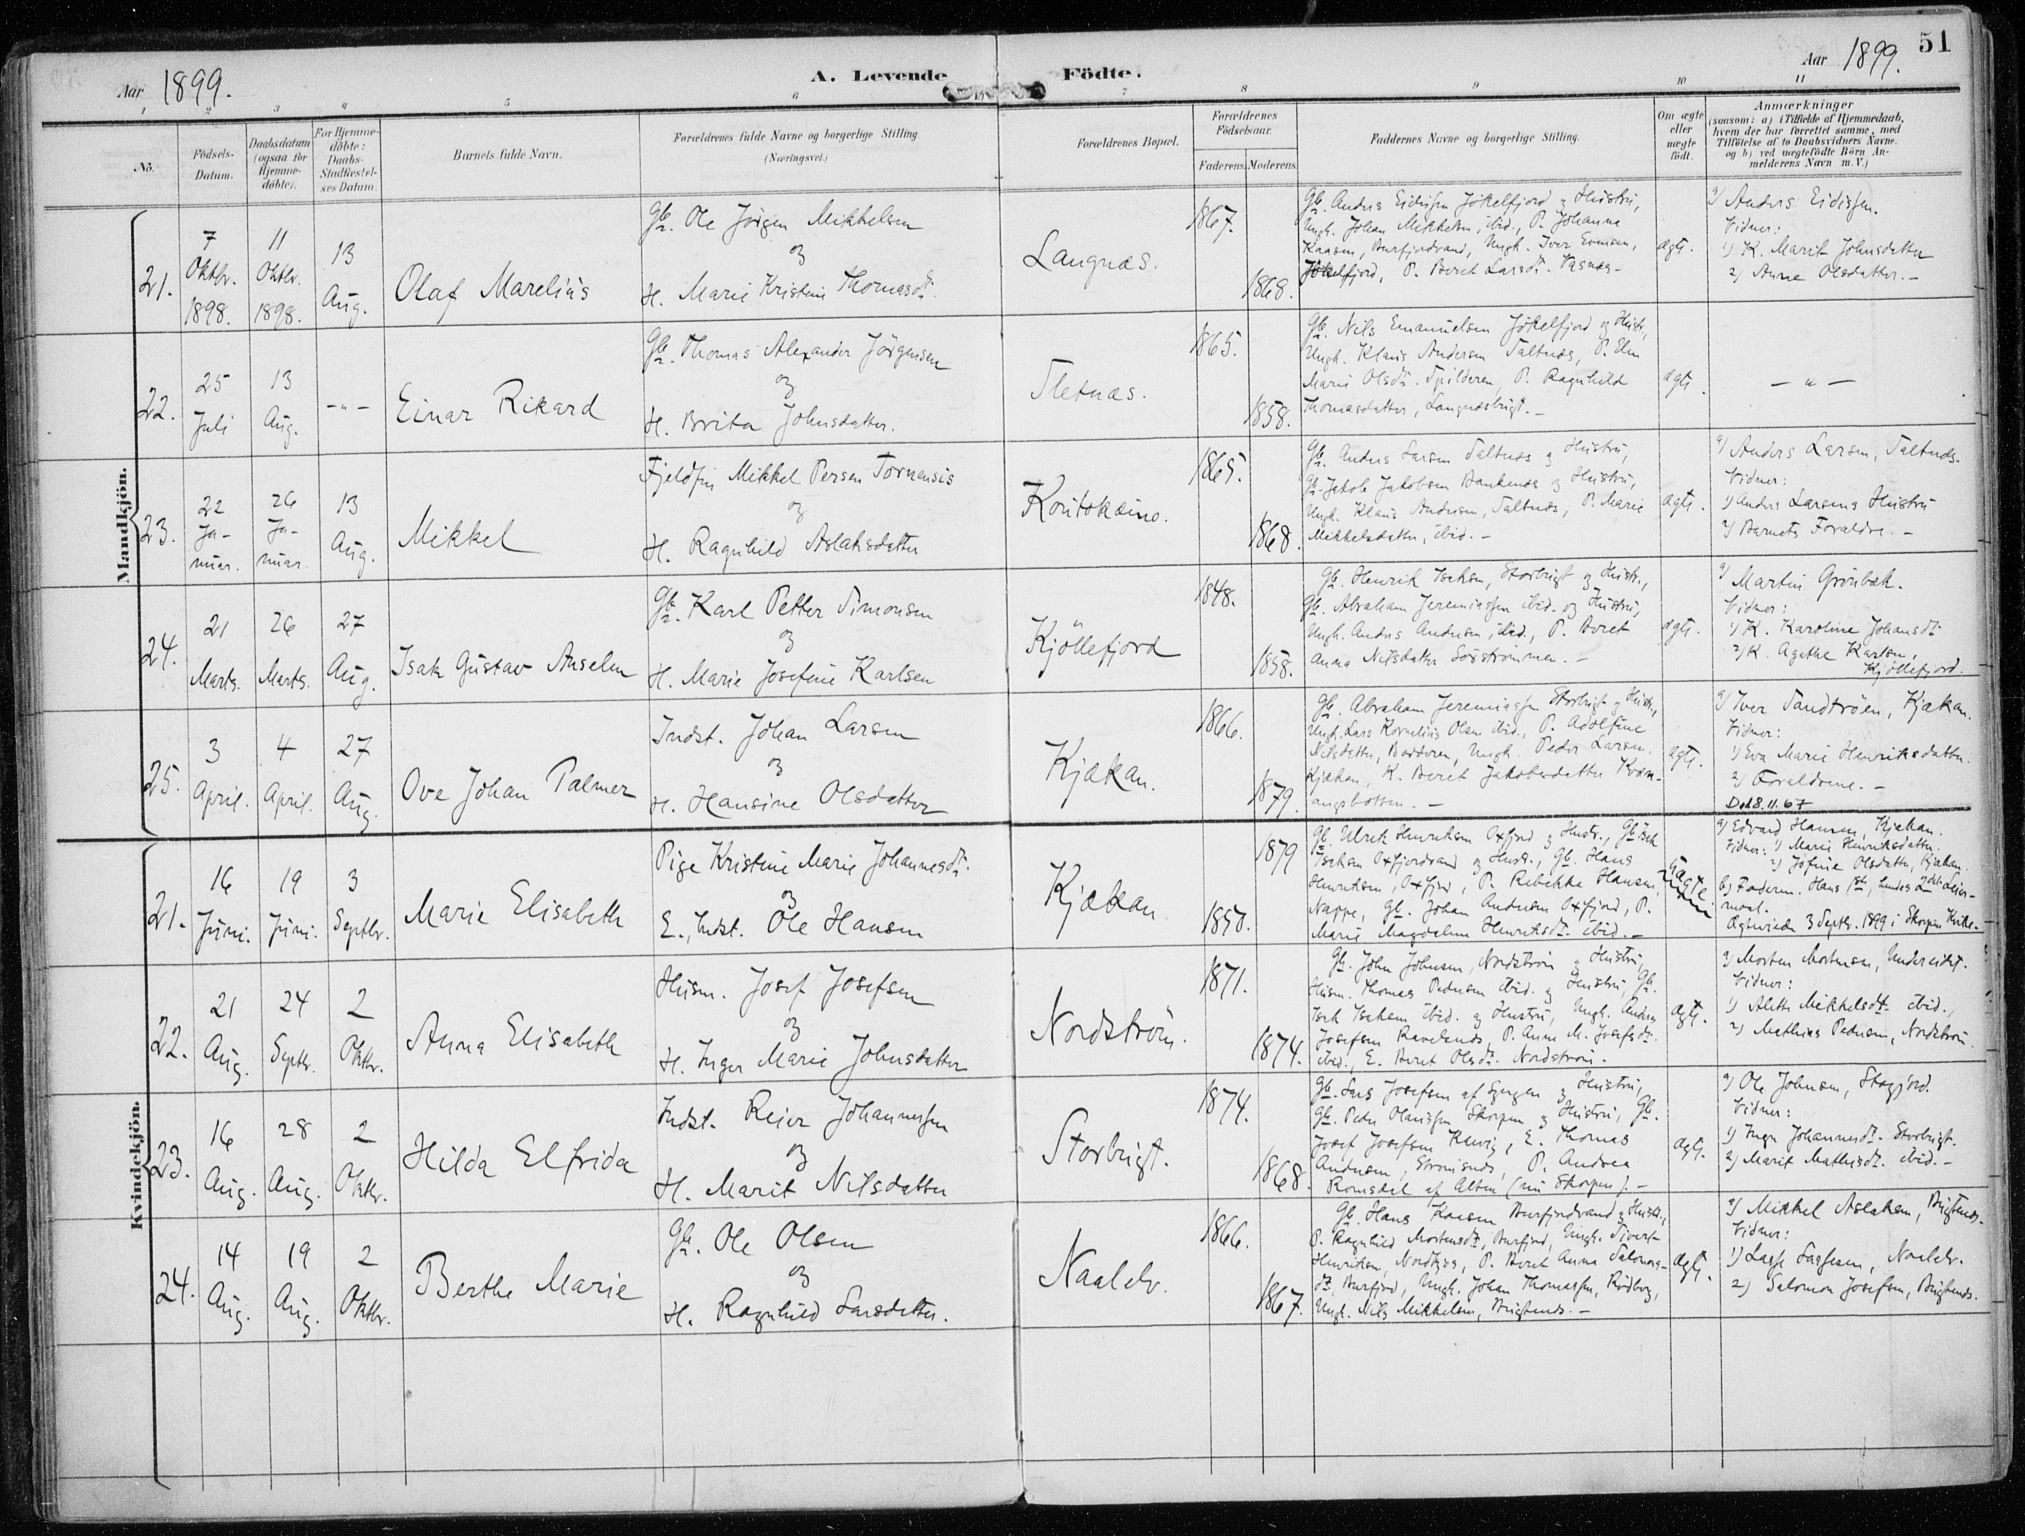 51
Aar 1899. A. Levende Födte. Aar 1899.
1 2 3 4 5 6 7 8 9 10 11
No.
Födsels-
Datum.
Daabsdatum
(ogsaa for
Hjemme-
döbte).
For Hjemme-
döbte:
Daabs-
Stadfæstel-
ses Datum.
Barnets fulde Navn.
Forældrenes fulde Navne og borgerlige Stilling.
(Næringsvei.)
Forældrenes Bopæl.
Forældrenes
Födselsaar.
Faderens. Moderens.
Faddernes Navne og borgerlige Stilling.
Om ægte
eller
uægte
födt.
Anmærkninger
(saasom: a) i Tilfælde af Hjemmedaab,
hvem der har forrettet samme, med
Tilföielse af to Daabsvidners Navne,
og b) ved uægtefödte Börn An-
melderens Navn m. V.)
Mandkjön.
21.
7
Oktbr.
1898.
11
Oktbr.
1898.
13
Aug.
Olaf Marelius
Gb. Ole Jörgen Mikkelsen
og
H. Marie Kristine Thomasdt.
Langnæs.
1867.
1868.
Gb. Anders Eidissen Jökelfjord og Hustru,
Ungk. Johan Mikkelsen, ibid., P. Johanna
Kaasen, Burfjordvand, Ungk. Iver
Jökelfjord, P. Berit Larsdt.
ægt.
a) Anders Eidissen.
Vidner:
1) K. Marit Johnsdatter
2) Anne Olsdatter. –
22.
25
Juli
13
Aug.
- " -
Einar Rikard
Gb. Thomas Alexander Jörgensen
og
H. Brita Johnsdatter.
Sletnæs.
1865.
1858.
Gb. Nils Emanuelsen Jökelfjord og Hustr.,
Ungk. Klaus Andersen Saltnæs, P.
Marie Olsdt. Spilderen, P. Ragnhild
Thomasdatter, Langnæsbugt. –
ægt.
- " -
23.
22
Ja-
nuar.
26
Ja-
nuar.
13
Aug.
Mikkel
Fjeldfin Mikkel Persen Tornensis
og
H. Ragnhild Aslaksdatter
Koutokeino.
1865.
1868.
Gb. Anders Larsen Saltnæs og Hustru,
Gb. Jakob Jakobsen og Hustru,
Ungk. Klaus Andersen, Saltnæs, P. Marie
Mikkelsdatter, ibid. –
ægt.
a) Anders Larsen, Saltnæs.
Vidner:
1) Anders Larsens Hustru
2) Barnets Forældre. –
24.
21
Marts.
26
Marts.
27
Aug.
Isak Gustav Anselm
Gb. Karl Petter Simonsen
og
H. Marie Josefine Karlsen
Kjöllefjord
1848.
1858.
Gb. Henrik Isaksen, Storbugt og Hustr.,
Gb. Abraham Jeremiassen ibid. og Hustru,
Ungk. Anders Andersen, ibid., P. Berit
Anna Nilsdatter Sörströmmen. –
ægt.
a) Martin Grönbæk.
Vidner:
1) K. Karoline Johansdt.
2) K. Agathe Karlsen,
Kjöllefjord.
25.
3
April.
4
April.
27
Aug.
Ove Johan Palmer
Indst. Johan Larsen
og
H. Hansine Olsdatter
Kjækan.
1866.
1879.
Gb. Abraham Jeremiassen Storbugt og Hustr.,
Ungk. Lars Kornelius Olsen ibid., P. Adolfine
Nilsdatter, Badderen, Ungk. Peder Larsen,
Kjækan, K. Berit Jakobsdatter Kvæn-
angsbotten. –
ægt.
a) Iver Sandtrøen, Kjækan.
Vidner:
1) Eva Marie Henriksdatter
2) Forældrene. –
Död 8.11.67
Kvindekjön.
21.
16
Juni.
19
Juni.
3
Septbr.
Marie Elisabeth
Pige Kristine Marie Johannesdt.
og
E., Indst. Ole Hansen
Kjækan
1879
1850.
Gb. Ulrik Henriksen Oxfjord og Hustr., Gb. Isak
Isaksen Oxfjordvand og Hustr., Gb. Hans
Henriksen, Oxfjord, P. Rebekka Hansen,
Nappe, Gb. Johan Andersen Oxfjord, P.
Marie Magdalene Henriksdt. ibid. –
Uægte
a) Edvard Hansen, Kjækan.
Vidner: 1) Marie Henriksdatter
2) Josefine Olsdatter, Kjækan.
b) Faderen. Hans 1ste, hendes 2det Leier-
maal.
Ægteviede 3 Septbr. 1899 i Skorpen Kirke.
22.
21
Aug.
24
Septbr.
2
Oktbr.
Anna Elisabeth
Husm. Josef Josefsen
og
H. Inger Marie Johnsdatter
Nordström.
1871.
1874.
Gb. John Johnsen, Nordström og Hustru,
Husm. Thomas Pedersen ibid. og Hustru, Gb.
Isak Isaksen ibid. og Hustru, Ungk. Anders
Josefsen, P. Anne M. Josefsdt.
ibid., E. Berit Olsdt. Nordström. –
ægt.
a) Morten Mortensen, Undereidet.
Vidner:
1) Aleth Mikkelsdt. ibid.,
2) Mathias Pedersen, Nordström.
23.
16
Aug.
28
Aug.
2
Oktbr.
Hilda Elfrida
Indst. Reier Johannessen
og
H. Marit Nilsdatter
Storbugt.
1874.
1868.
Gb. Lars Josefsen af Lyngen og Hustru,
Gb. Peder Olaussen Skorpen og Hustru, Gb.
Josef Josefsen, E. Thomas
Andersen, Strömsnæs, P. Andrea
Romsdal af Alten (nu Skorpen). –
ægt.
a) Ole Johnsen, Stogfjord.
Vidner:
1) Inga Johannesdt. Storbugt.
2) Marit Mathisdt. ibid. –
24.
14
Aug.
19
Aug.
2
Oktbr.
Berthe Marie
Gb. Ole Olsen
og
H. Ragnhild Larsdatter.
Naaleelv.
1866.
1867.
Gb. Hans Kaasen Burfjordvand og Hustr.,
P. Ragnhild Mortensdt., Burfjord, Ungk. Sivert
Henriksen, P. Berit Anna Salomons-
dt., Burfjord, Ungk. Johan Thomassen, Rödberg,
Ungk. Nils Mikkelsen, Bugtenæs. –
ægt.
a) Mikkel Aslaksen, Bugtenæs.
Vidner:
1) Lasse Lassesen, Naaleelv.
2) Salomon Josefsen, Bugtenæs.